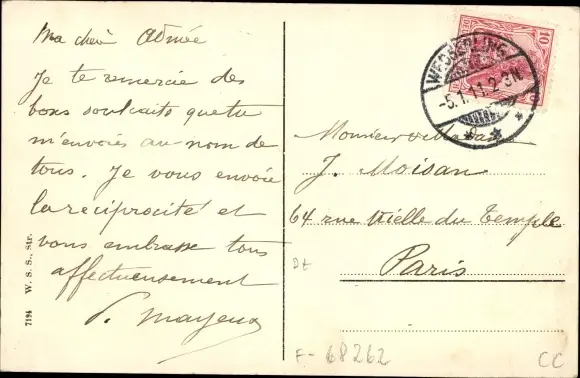 Ma chère Admée
Je te remercie des
bons souhaits que tu
m'envoies au nom de
tous. Je vous envoie
la réciprocité et
vous embrasse tous
affectueusement
P. Mayeux
7194 W. S. S., Str.
10
WESSERLING
-5.1.11.2-3N.
Monsieur
J. Moisan
64 rue Vielle du Temple
Paris
F-68262
CC